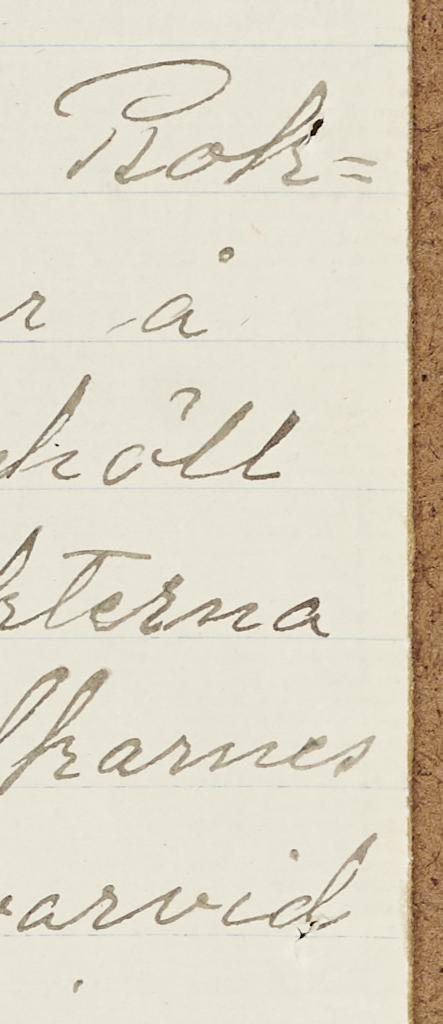 Bok=
r å
höll
kterna
lkarnes
varvid